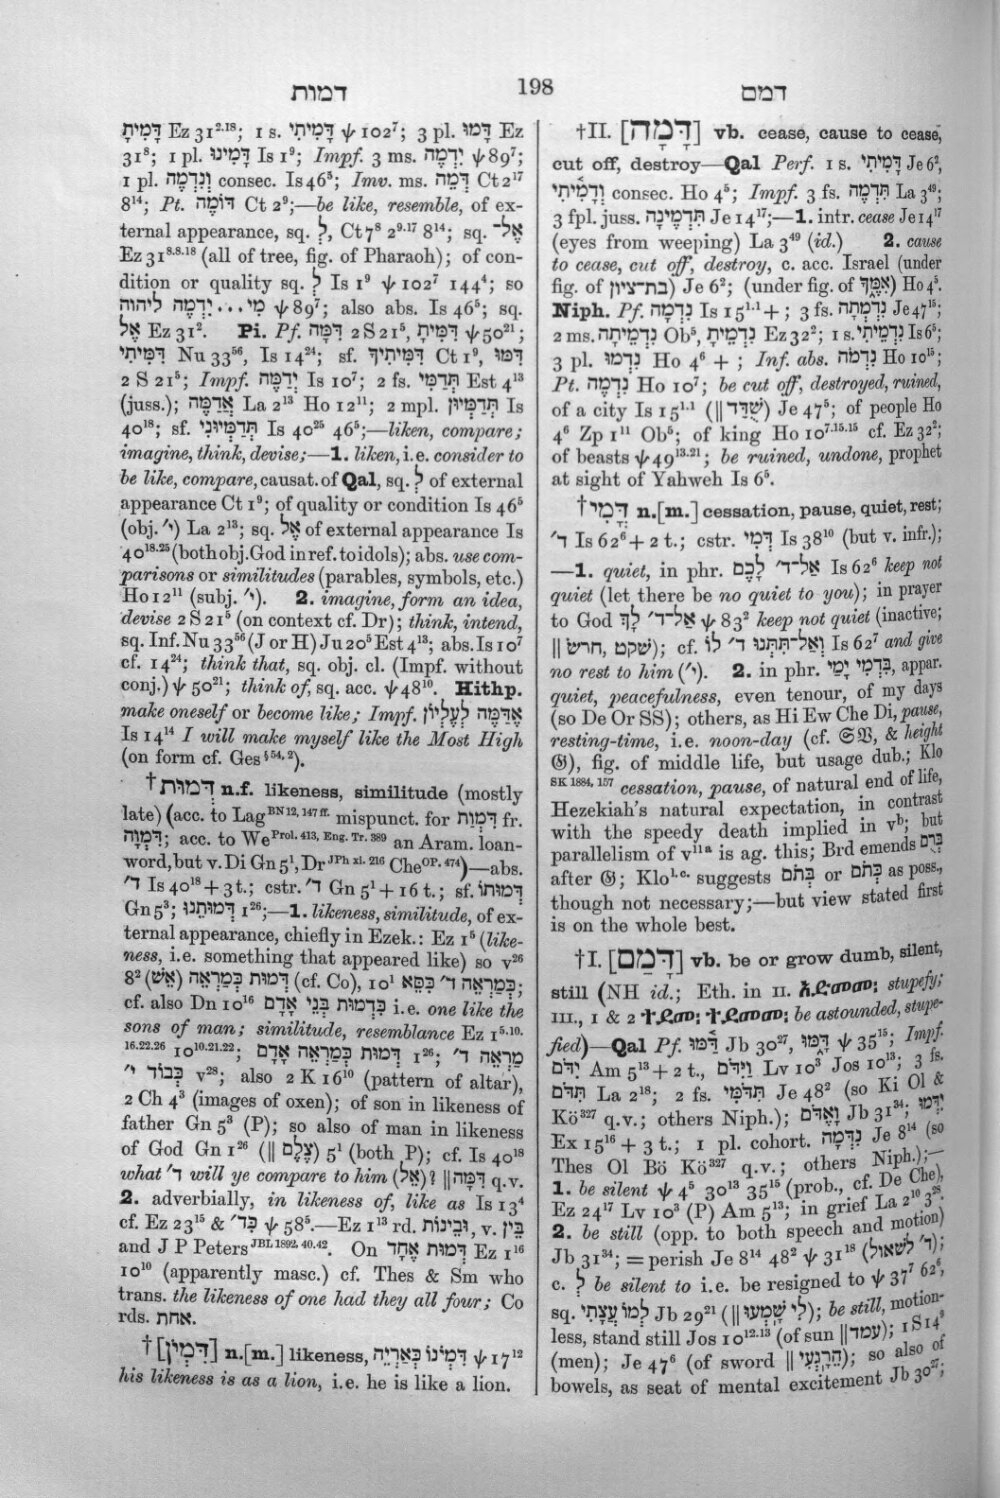 דמות
198
דמם
דָּמִיתָ Ez 31²·¹⁸; 1 s. דָּמִיתִי ψ 102⁷; 3 pl. דָּמוּ Ez
31⁸; 1 pl. דָּמִינוּ Is 1⁹; Impf. 3 ms. יִדְמֶה ψ 89⁷;
1 pl. וְנִדְמֶה consec. Is 46⁵; Imv. ms. דְּמֵה Ct 2¹⁷
8¹⁴; Pt. דּוֹמֶה Ct 2⁹;—be like, resemble, of ex-
ternal appearance, sq. לְ, Ct 7⁸ 2⁹·¹⁷ 8¹⁴; sq. אֶל־
Ez 31⁸·⁸·¹⁸ (all of tree, fig. of Pharaoh); of con-
dition or quality sq. לְ Is 1⁹ ψ 102⁷ 144⁴; so
מִי...יִדְמֶה ליהוה ψ 89⁷; also abs. Is 46⁵; sq.
אֶל Ez 31². Pi. Pf. דִּמָּה 2 S 21⁵, דִּמִּיתָ ψ 50²¹;
דִּמִּיתִי Nu 33⁵⁶, Is 14²⁴; sf. דִּמִּיתִיךְ Ct 1⁹, דִּמּוּ
2 S 21⁵; Impf. יְדַמֶּה Is 10⁷; 2 fs. תְּדַמִּי Est 4¹³
(juss.); אֲדַמֶּה La 2¹³ Ho 12¹¹; 2 mpl. תְּדַמְּיוּן Is
40¹⁸; sf. תְּדַמְּיוּנִי Is 40²⁵ 46⁵;—liken, compare;
imagine, think, devise;—1. liken, i.e. consider to
be like, compare, causat. of Qal, sq. לְ of external
appearance Ct 1⁹; of quality or condition Is 46⁵
(obj. י״) La 2¹³; sq. אֶל of external appearance Is
40¹⁸·²⁵ (both obj. God in ref. to idols); abs. use com-
parisons or similitudes (parables, symbols, etc.)
Ho 12¹¹ (subj. י״). 2. imagine, form an idea,
devise 2 S 21⁵ (on context cf. Dr); think, intend,
sq. Inf. Nu 33⁵⁶ (J or H) Ju 20⁵ Est 4¹³; abs. Is 10⁷
cf. 14²⁴; think that, sq. obj. cl. (Impf. without
conj.) ψ 50²¹; think of, sq. acc. ψ 48¹⁰. Hithp.
make oneself or become like; Impf. אֶדַּמֶּה לְעֶלְיוֹן
Is 14¹⁴ I will make myself like the Most High
(on form cf. Ges §⁵⁴·²).
† דְּמוּת n.f. likeness, similitude (mostly
late) (acc. to Lag BN 12, 147 ff. mispunct. for דְּמוּת fr.
דִּמְוָה; acc. to We Prol. 413, Eng. Tr. 389 an Aram. loan-
word, but v. Di Gn 5¹, Dr JPh xi. 216 Che OP. 474)—abs.
ד׳ Is 40¹⁸ + 3 t.; cstr. ד׳ Gn 5¹ + 16 t.; sf. דְּמוּתוֹ
Gn 5³; דְּמוּתֵנוּ 1²⁶;—1. likeness, similitude, of ex-
ternal appearance, chiefly in Ezek.: Ez 1⁵ (like-
ness, i.e. something that appeared like) so v²⁶
8² דְּמוּת כְּמַרְאֵה (אֵשׁ) (cf. Co), 10¹ כְּמַרְאֵה ד׳ כִּסֵּא;
cf. also Dn 10¹⁶ כִּדְמוּת בְּנֵי אָדָם i.e. one like the
sons of man; similitude, resemblance Ez 1⁵·¹⁰·
¹⁶·²²·²⁶ 10¹⁰·²¹·²²; דְּמוּת כְּמַרְאֵה אָדָם 1²⁶;
מַרְאֵה ד׳ כְּבוֹד י׳ v²⁸; also 2 K 16¹⁰ (pattern of altar),
2 Ch 4³ (images of oxen); of son in likeness of
father Gn 5³ (P); so also of man in likeness
of God Gn 1²⁶ (‖ צֶלֶם) 5¹ (both P); cf. Is 40¹⁸
what ד׳ will ye compare to him (אֵל)? ‖ דִּמָּה q.v.
2. adverbially, in likeness of, like as Is 13⁴
cf. Ez 23¹⁵ & כִּד׳ ψ 58⁵.—Ez 1¹³ rd. וּבֵינוֹת, v. בֵּין
and J P Peters JBL 1892, 40. 42. On דְּמוּת אֶחָד Ez 1¹⁶
10¹⁰ (apparently masc.) cf. Thes & Sm who
trans. the likeness of one had they all four; Co
rds. אחת.
† [דִּמְיֹן] n.[m.] likeness, דִּמְיֹנוֹ כְּאַרְיֵה ψ 17¹²
his likeness is as a lion, i.e. he is like a lion.
†II. [דָּמָה] vb. cease, cause to cease,
cut off, destroy—Qal Perf. 1 s. דָּמִיתִי Je 6²,
וְדָמִיתִי consec. Ho 4⁵; Impf. 3 fs. תִּדְמֶה La 3⁴⁹;
3 fpl. juss. תִּדְמֶינָה Je 14¹⁷;—1. intr. cease Je 14¹⁷
(eyes from weeping) La 3⁴⁹ (id.) 2. cause
to cease, cut off, destroy, c. acc. Israel (under
fig. of בת־ציון) Je 6²; (under fig. of אִמֶּךָ) Ho 4⁵.
Niph. Pf. נִדְמָה Is 15¹·¹ +; 3 fs. נִדְמְתָה Je 47⁵;
2 ms. נִדְמֵיתָה Ob⁵, נִדְמֵיתָ Ez 32²; 1 s. נִדְמֵיתִי Is 6⁵;
3 pl. נִדְמוּ Ho 4⁶ +; Inf. abs. נִדְמֹה Ho 10¹⁵;
Pt. נִדְמֶה Ho 10⁷; be cut off, destroyed, ruined,
of a city Is 15¹·¹ (‖ שֻׁדַּד) Je 47⁵; of people Ho
4⁶ Zp 1¹¹ Ob⁵; of king Ho 10⁷·¹⁵·¹⁵ cf. Ez 32²;
of beasts ψ 49¹³·²¹; be ruined, undone, prophet
at sight of Yahweh Is 6⁵.
† דֳּמִי n.[m.] cessation, pause, quiet, rest;
ד׳ Is 62⁶ + 2 t.; cstr. דְּמִי Is 38¹⁰ (but v. infr.);
—1. quiet, in phr. אַל־ד׳ לָכֶם Is 62⁶ keep not
quiet (let there be no quiet to you); in prayer
to God אַל־ד׳ לָךְ ψ 83² keep not quiet (inactive;
‖ שׁקט, חרשׁ); cf. וְאַל־תִּתְּנוּ ד׳ לוֹ Is 62⁷ and give
no rest to him (י״). 2. in phr. בִּדְמִי יָמַי, appar.
quiet, peacefulness, even tenour, of my days
(so De Or SS); others, as Hi Ew Che Di, pause,
resting-time, i.e. noon-day (cf. 𝔖𝔙, & height
𝔊), fig. of middle life, but usage dub.; Klo
SK 1884, 157 cessation, pause, of natural end of life,
Hezekiah's natural expectation, in contrast
with the speedy death implied in vᵇ; but
parallelism of v¹¹ᵃ is ag. this; Brd emends בְּרֻם
after 𝔊; Klo l.c. suggests בְּתֹם or כְּתֹם as poss.,
though not necessary;—but view stated first
is on the whole best.
†I. [דָּמַם] vb. be or grow dumb, silent,
still (NH id.; Eth. in II. አደመመ፡ stupefy;
III., 1 & 2 ተደመ፡ ተደመመ፡ be astounded, stupe-
fied)—Qal Pf. דַּמּוּ Jb 30²⁷, דָּמּוּ ψ 35¹⁵; Impf.
יִדֹּם Am 5¹³ + 2 t., וַיִּדֹּם Lv 10³ Jos 10¹³; 3 fs.
תִּדֹּם La 2¹⁸; 2 fs. תִּדֹּמִּי Je 48² (so Ki Ol &
Kö³²⁷ q.v.; others Niph.); וָאֶדֹּם Jb 31³⁴; יִדְּמוּ
Ex 15¹⁶ + 3 t.; 1 pl. cohort. נִדְּמָה Je 8¹⁴ (so
Thes Ol Bö Kö³²⁷ q.v.; others Niph.);—
1. be silent ψ 4⁵ 30¹³ 35¹⁵ (prob., cf. De Che),
Ez 24¹⁷ Lv 10³ (P) Am 5¹³; in grief La 2¹⁰ 3²⁸.
2. be still (opp. to both speech and motion)
Jb 31³⁴; = perish Je 8¹⁴ 48² ψ 31¹⁸ (ד׳ לשׁאול);
c. לְ be silent to i.e. be resigned to ψ 37⁷ 62⁶,
sq. לְמוֹ עֲצָתִי Jb 29²¹ (‖ לִי שָׁמְעוּ); be still, motion-
less, stand still Jos 10¹²·¹³ (of sun ‖ עמד); 1 S 14⁹
(men); Je 47⁶ (of sword ‖ הֵרָגְעִי); so also of
bowels, as seat of mental excitement Jb 30²⁷;